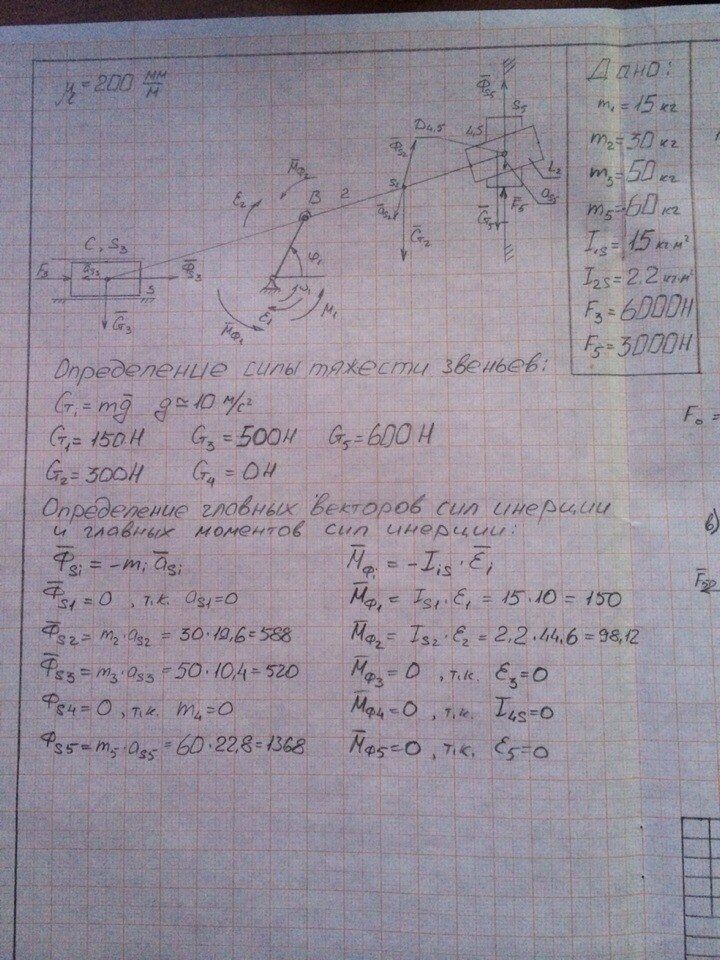 μ = 200 мм/м
Дано:
m₁ = 15 кг
m₂ = 30 кг
m₃ = 50 кг
m₅ = 60 кг
I₁ₛ = 15 кг·м²
I₂ₛ = 2.2 кг·м²
F₃ = 6000Н
F₅ = 3000Н
Φ̄s5
S₅
D4,5
4,5
Φ̄s2
L₂
F̄₅
Ḡ₅
Ḡ₂
M̄Φ₂
ε₂
B
2
C, S₃
F₃
Φ̄s3
Ḡ₃
φ₁
ε₁
M₁
M̄Φ₁
Определение силы тяжести звеньев:
G₁ = mḡ g ≃ 10 м/с²
G₁ = 150Н G₃ = 500Н G₅ = 600Н
G₂ = 300Н G₄ = 0Н
Определение главных векторов сил инерции
и главных моментов сил инерции:
Φ̄si = -mᵢ āsi M̄Φi = -Iis · ε̄i
Φ̄s1 = 0 , т.к. as1 = 0 M̄Φ1 = Is1 · ε₁ = 15 · 10 = 150
Φ̄s2 = m₂ · as2 = 30 · 19,6 = 588 M̄Φ2 = Is2 · ε₂ = 2,2 · 44,6 = 98,12
Φ̄s3 = m₃ · as3 = 50 · 10,4 = 520 M̄Φ3 = 0 , т.к. ε₃ = 0
Φs4 = 0 , т.к. m₄ = 0 M̄Φ4 = 0 , т.к. I4s = 0
Φs5 = m₅ · as5 = 60 · 22,8 = 1368 M̄Φ5 = 0 , т.к. ε₅ = 0
F₀ =
в)